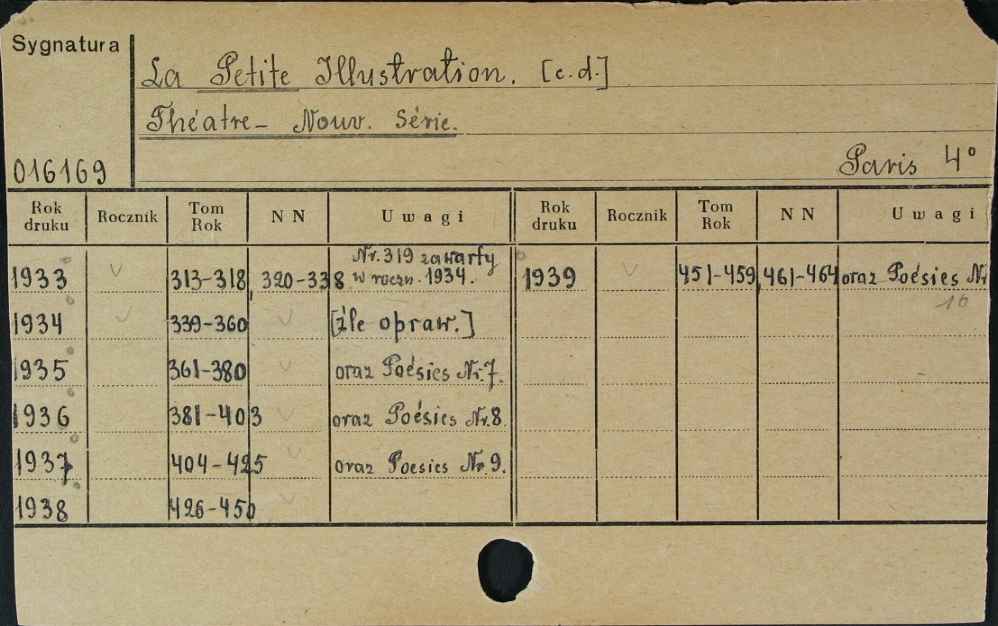 Sygnatura
La Petite Illustration. [c.d.]
Théatre- Nouv. Série.
016169
Paris 4°
Rok druku Rocznik Tom Rok N N Uwagi Rok druku Rocznik Tom Rok N N Uwagi
1933 v 313-318, 320-338 Nr. 319 zawarty w roczn. 1934. 1939 v 451-459, 461-464 oraz Poésies Nr 10
1934 v 339-360 v [źle opraw.]
1935 361-380 v oraz Poésies Nr. 7.
1936 381-403 v oraz Poésies Nr. 8.
1937 404-425 oraz Poesies Nr 9.
1938 426-450 v